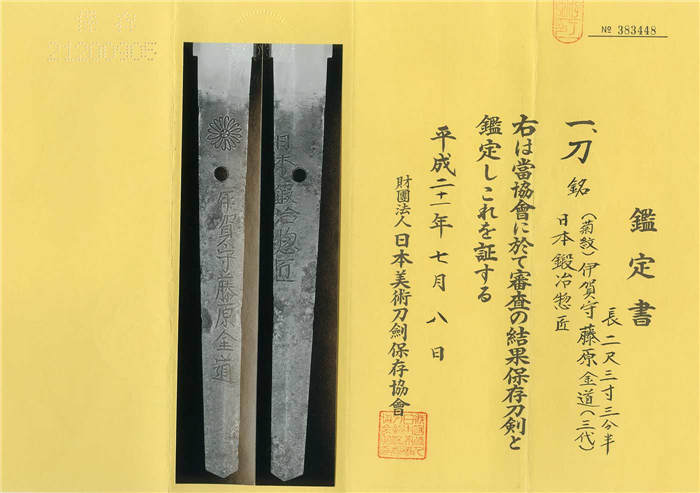 № 383448
鑑定書
一、刀 銘 (菊紋)伊賀守藤原金道(三代)
日本鍛冶惣匠
長二尺三寸三分半
右は當協會に於て審査の結果保存刀剣と
鑑定しこれを証する
平成二十一年七月八日
財團法人 日本美術刀劍保存協會
日本鍛冶惣匠
伊賀守藤原金道